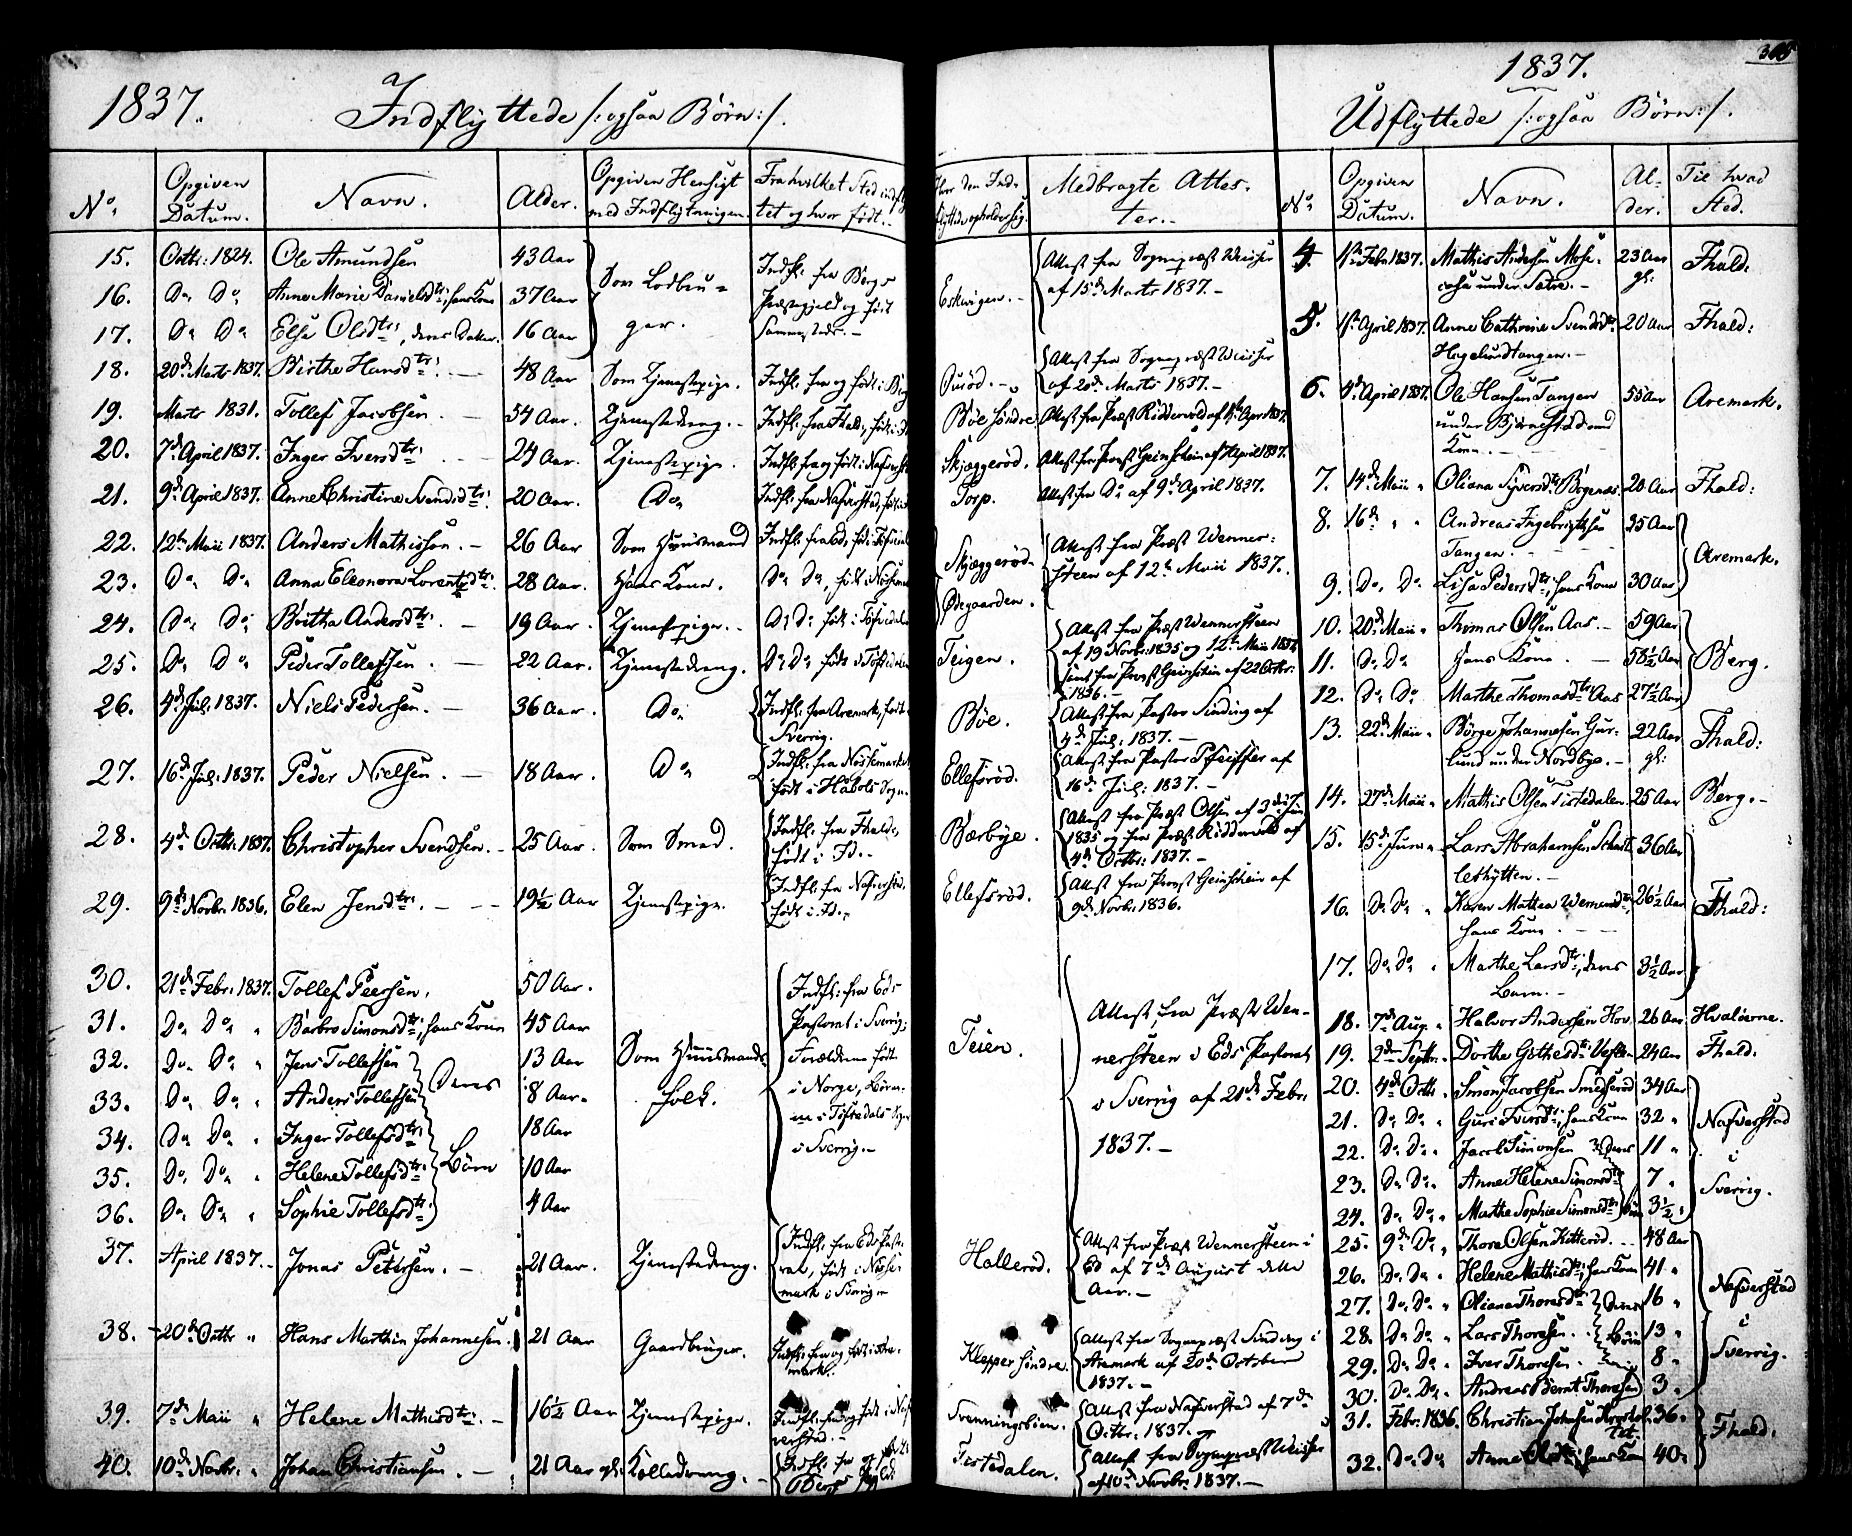 1837. Indflyttede /: ogsaa Børn :/.
No. Opgiven Datum. Navn. Alder. Opgiven Hensigt med Indflytningen. Fra hvilket Sted indflyttet og hvor født.
15. Octbr: 1824. Ole Amundsen 43 Aar Som Lodbru= Indfl: fra Bergs
16. Do Do Anne Marie Danielsdtr:, hans Kone 37 Aar ger. Præstegjeld og født
17. Do Do Else Olsdtr:, deres Datter. 16 Aar Sammesteds. —
18. 20de Marts 1837. Birthe Hansdtr: — 48 Aar Som Tjenestepige. Indfl: fra og født i Berg
19. Marts 1831. Tollef Jacobsen. — 54 Aar. Tjenestedreng. — Indfl: fra Fhald:, født i Id
20. 7de April 1837. Inger Iversdtr: — 24 Aar. Tjenestepige. Indfl: fra og født i Nafverstad
21. 9de April 1837. Anne Christine Svendsdtr: 20 Aar. Do Indfl: fra Nafverstad, født
22. 12te Maii 1837. Anders Mathissen. — 26 Aar Som Huusmand Indfl: fra Ed, født i
23. Do Do Anna Eleonora Lorentzdtr: 28 Aar. Hans Kone. Do Do, født i
24. Do Do Britha Andersdtr: — 19 Aar. Tjenestepige. — Do Do født i
25. Do Do Peder Tollefsen. — 22 Aar. Tjenestedreng. Do Do født i
26. 4de Jul: 1837. Niels Pedersen. — 36 Aar. Do Indfl: fra Aremark, født
Sverrig.
27. 16de Jul: 1837. Peder Nielsen. — 18 Aar. Do Indfl: fra Nössemarkens
født i Håbols Sogn
28. 4de Octbr: 1837. Christopher Svendsen. — 25 Aar. Som Smed. Indfl: fra Fhald:,
født i Id. —
29. 9de Novbr: 1836. Elen Jensdtr: — — 19½ Aar Tjenestepige. Indfl: fra Nafverstad,
født i Id.
30. 21de Febr: 1837. Tollef Peersen. 50 Aar. Indfl: fra Eds
31. Do Do " Barbro Simonsdtr:, hans Kone 45 Aar Pastorat i Sverrig;
32. Do Do " Jens Tollefsen 13 Aar Som Huusmands= Forældrene født
33. Do Do " Anders Tollefsen Deres 8 Aar. folk. i Norge, Børne=
34. Do Do " Inger Tollefsdtr: 18 Aar ne i Tösse­dals Sogn
35. Do Do " Helene Tollefsdtr: Børn 10 Aar i Sverrig. —
36. Do Do " Sophie Tollefsdtr: 4 Aar
37. April 1837. — Jonas Petersen. — 21 Aar. Tjenestedreng. Indfl: fra Eds Pasto=
rat, født i Nösse=
mark i Sverrig —
38. 20de Octbr " Hans Marthin Johannesen. 21 Aar Gaardbruger. Indfl: fra og født i Are=
mark.
39. 7de Maii " Helene Mathisdtr: — 16½ Aar Tjenestepige. Indfl: fra og født i Naf=
verstad. —
40. 10de Novbr: " Johan Christiansen. — 21 Aar gl: Kulledreng. — Indfl: fra og født
i Bergs
Hvor den Ind= flyttede opholder sig. Medbragte Attes= ter. —
Eskevigen. — Attest fra Sognepræst Weisser
af 15de Marts 1837. —
Attest fra Sognepræst Weisser
af 20de Marts 1837. —
Bøe søndre Attest fra Præst Riddervold af April 1837.
Skjæggerød. Attest fra Provst Geinschein af 7 April 1837.
Torp. Attest fra Do af 9de April 1837.
Skjæggerød= Attest fra Præst Wenner=
Ødegaarden. steen af 12te Maii 1837.
Teigen. Attest fra Præst Wennersteen
af 19 Novbr: 1835 og 12te Maii 1837
samt fra Provst Geinschein af 22 Octbr:
1836. —
Bøe. Attest fra Pastor Sinding af
4de Jul: 1837. —
Ellefsrød. Attest fra Pastor Pfeiffer af
16de Jul: 1837. —
Bærbye. Attest fra Præst Olsen af
1835 og fra Præst Riddervold af
4de Octbr: 1837. —
Ellefsrød. Attest fra Provst Geinschein af
9de Novbr: 1836.
Teien. Attest fra Præst Wen=
nersteen i Eds Pastorat
i Sverrig af 21de Febr:
1837. —
Hallerød. Attest fra Præst Wennersteen i
Ed af 7de August dette
Aar. —
Klepper søndre. Attest fra Sognepræst Sinding i
Aremark af 20de October
1837. —
Svenningsbien. Attest fra Nafverstad af 7de
Octbr: 1837. —
Tistedalen. Attest fra Sognepræst Weisser
af 10de Novbr: 1837. —
365
1837.
Udflyttede /: ogsaa Børn :/.
No. Opgiven Datum. Navn. Al= der. Til hvad Sted.
4. 1ste Febr: 1837. Mathis Andersen Mose= 23 Aar gl: Fhald:
5. 1ste April 1837. Anne Cathrine Svendsdtr: 20 Aar Fhald:
Hagelundtangen. —
6. April 1837. Ole Hansen Tangen 55 Aar Aremark.
under Bjørnestad med
Kone. —
7. 14de Maii " Oliana Syversdtr: Bøgenæs. 20 Aar Fhald:
8. 16de " " Andreas Ingebrigtsen 35 Aar
Tangen. Aremark.
9. Do Do Lisa Pedersdtr:, hans Kone 30 Aar
10. 20de Maii " Thomas Olsen Aas. — 59 Aar
11. Do Do hans Kone. — 58½ Aar Berg.
12. Do Do Marthe Thomasdtr: Aas 27½ Aar
13. 22de Maii " Børge Johannesen Gur= 22 Aar gl: Fhald:
lund under Nordbye. —
14. 27de Maii " Mathis Olsen Tistedalen. 25 Aar Berg. —
15. 15de Juni " Lars Abrahamsen 36 Aar
lehytten. —
16. Do Do " Karen Mathea Wernersdtr: 26½ Aar Fhald:
hans Kone. — —
17. Do Do " Marthe Larsdtr:, deres 3½ Aar
Barn. —
18. 7de Aug: " Halvor Andersen Hov. 26 Aar Hvaløerne.
19. 2den Septbr: " Dorthe Gøthesdtr: 24 Aar Fhald.
20. 4de Octbr " Simon Jacobsen Smedsrød 34 Aar
21. Do Do " Guri Iversdtr:, hans Kone 32 " Nafverstad
22. Do Do " Jacob Simonsen Deres 11 " i
23. Do Do " Anne Helene Simonsdtr: 7 " Sverrig.
24. Do Do " Marthe Sophie Simonsdtr: Børn 3½ "
25. 9de Do " Thore Olsen Kitterød. — 48 Aar
26. Do Do " Helene Mathisdtr:, hans Kone 41 " Nafverstad
27. Do Do " Oliana Thoresdtr: Deres 16 " i
28. Do Do " Lars Thoresen. Børn 13 " Sverrig.
29. Do Do " Iver Thoresen. 8 "
30. Do Do " Andreas Bernt Thoresen 3 "
31. Febr: 1836. Christian Johnsen 36 " Fhald.
32. Do Do Anne Olsdtr:, hans Kone 40 "